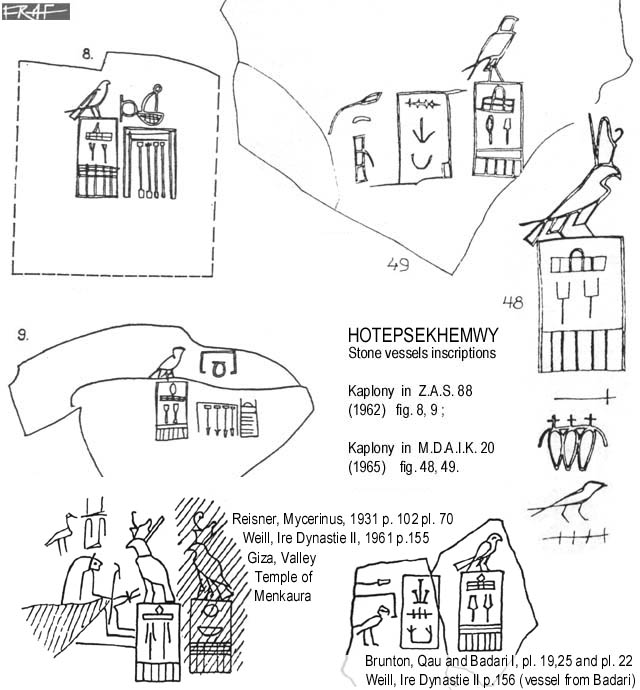 FRAF
8.
49
48
9.
HOTEPSEKHEMWY
Stone vessels inscriptions
Kaplony in Z.A.S. 88
(1962) fig. 8, 9 ;
Kaplony in M.D.A.I.K. 20
(1965) fig. 48, 49.
Reisner, Mycerinus, 1931 p. 102 pl. 70
Weill, Ire Dynastie II, 1961 p.155
Giza, Valley
Temple of
Menkaura
Brunton, Qau and Badari I, pl. 19,25 and pl. 22
Weill, Ire Dynastie II p.156 (vessel from Badari)